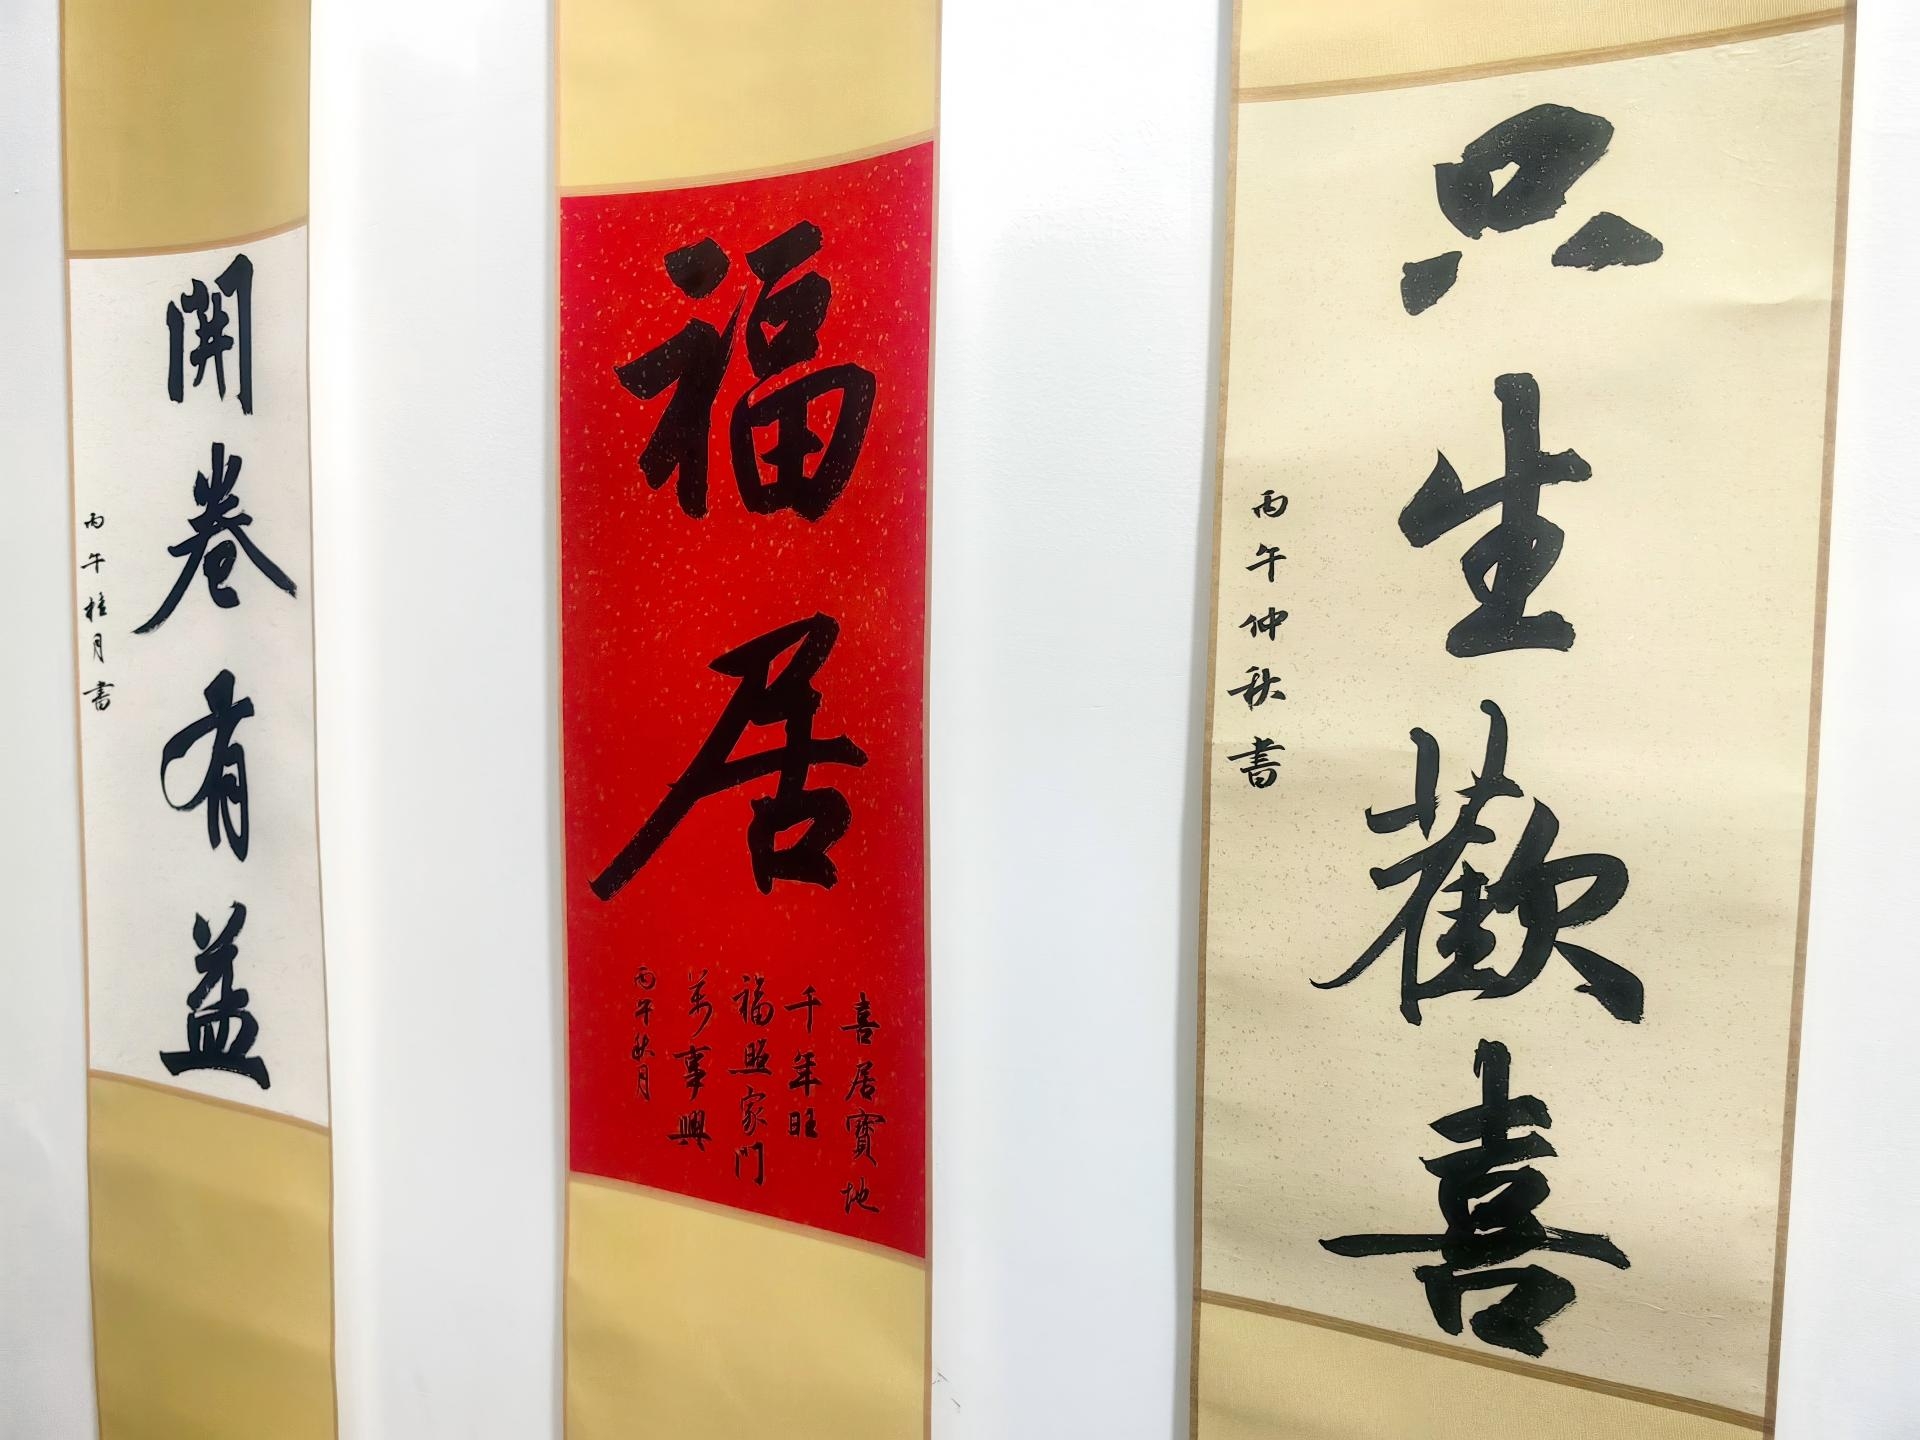 開卷有益
丙午桂月書
福居
喜居寶地
千年旺
福照家門
萬事興
丙午秋月
只生歡喜
丙午仲秋書